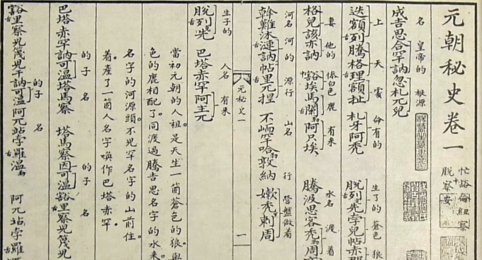 元朝秘史卷一
忙豁侖紐察
脫察安
名 皇帝的 根源
成吉思合罕訥忽札兀兒
上 天 處 命有的 生了的 蒼色 狼
迭額列騰格理額扯 札牙阿禿 脫列先孛兒帖赤
妻 他的 慘白色鹿 有來 水名 渡着
格兒該亦訥 豁埃馬闌勒阿只埃 騰汲思客禿周
河名 河的 源行 山名 行 營盤做着
斡難沐漣訥帖里兀捏 不峏罕哈敦納 嫩禿剌周
元秘史一
一
生子的 人名 有來
脫列先 巴塔赤罕阿主兀
當初元朝的人祖是天生一箇蒼色的狼與
色的鹿相配了同渡過騰吉思名字的水來
名字的河源頭不兒罕名字的山前住
着產了一箇人名字喚作巴塔赤罕
的子 名 的子 名
巴塔赤罕訥可溫塔馬察 塔馬察因可溫豁里察兒篾兒
的子 名
豁里察兒篾兒干訥可溫阿兀站孛羅溫 阿兀站孛羅